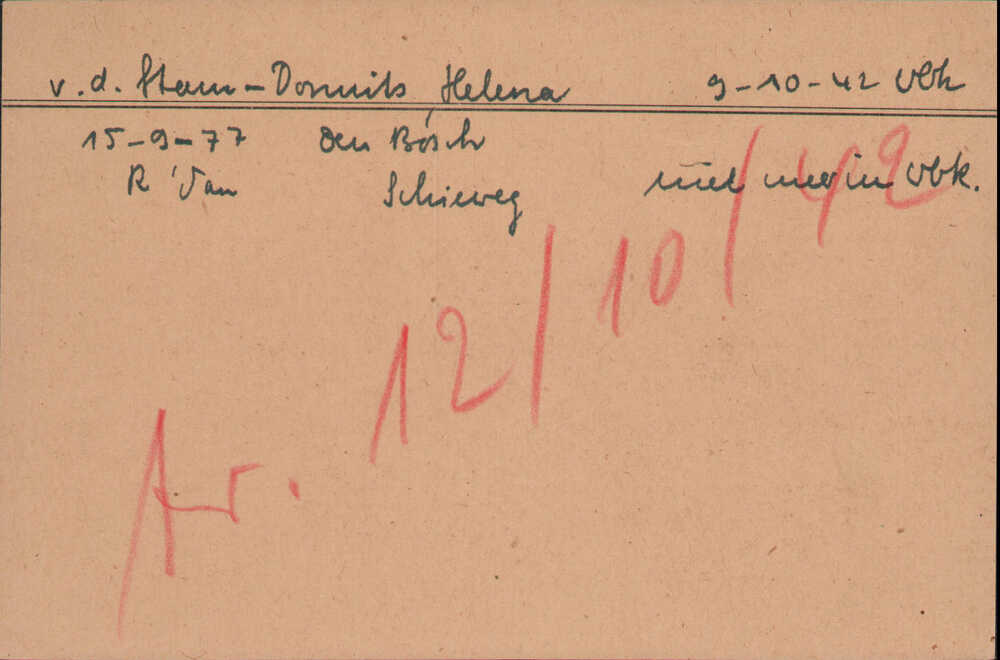 v.d. Stam-Dormits Helena 9-10-42 Vbk
15-9-77 Den Bosch
R'dam Schieweg niet meer in Vbk.
Av. 12/10/42